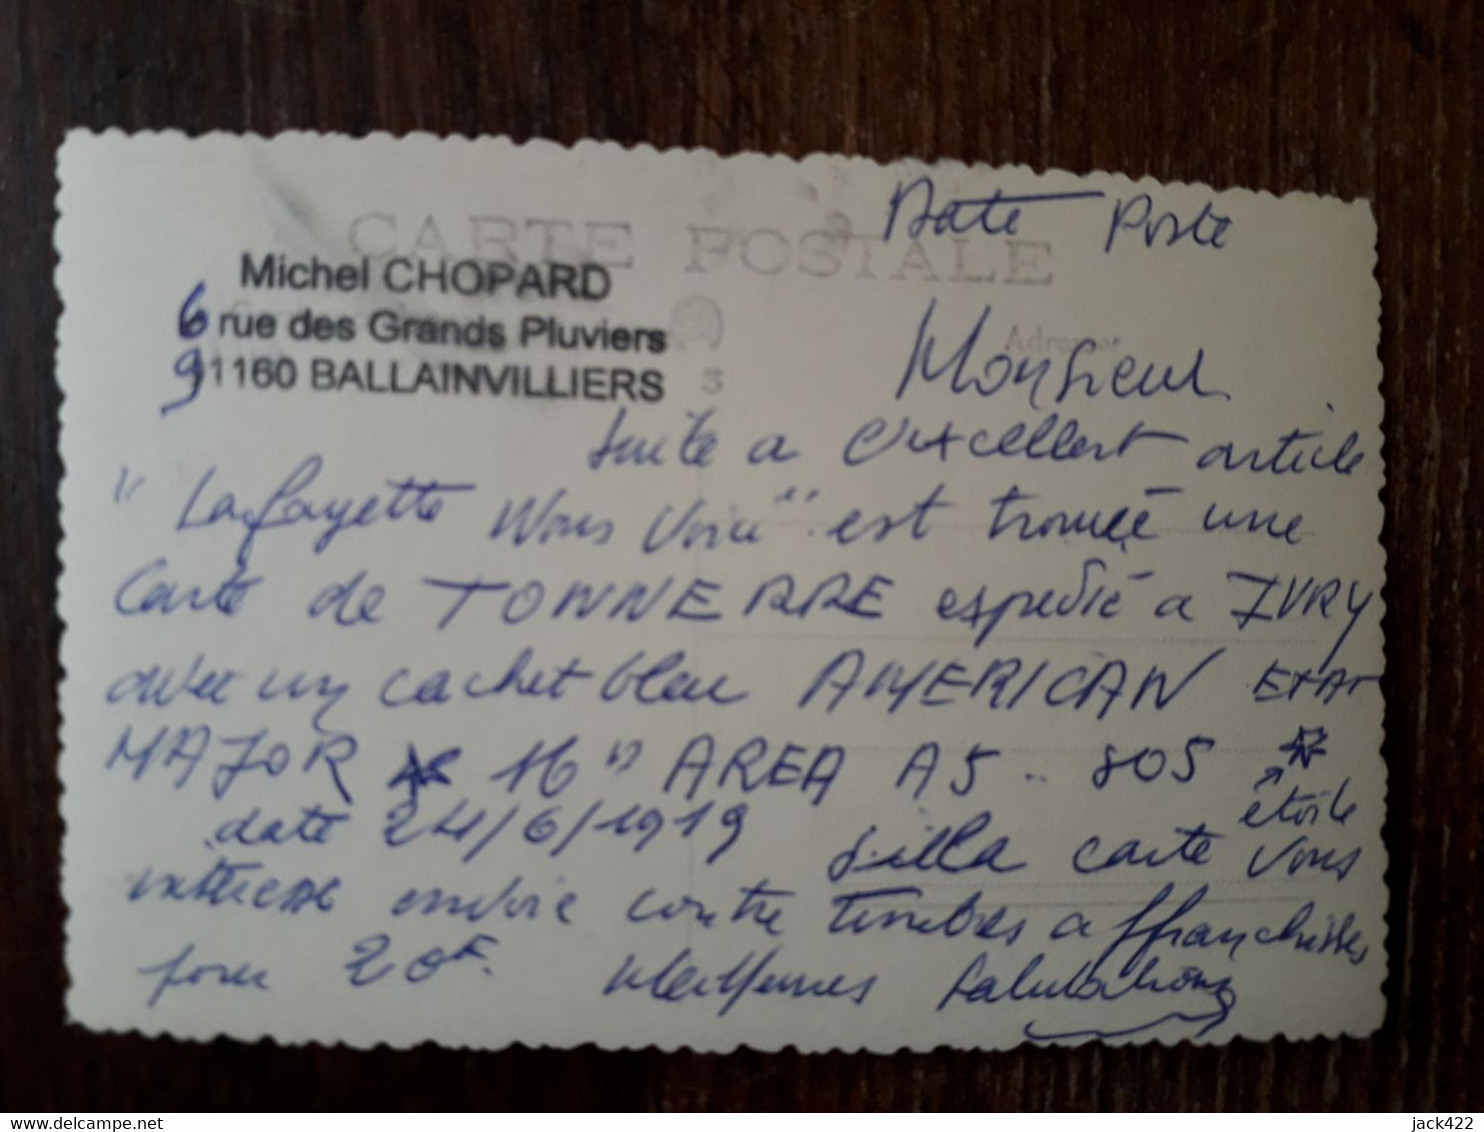 Date Poste
CARTE POSTALE
Michel CHOPARD
6 rue des Grands Pluviers
91160 BALLAINVILLIERS
Adresse
3
Monsieur
suite a l'excellent article
" Lafayette Nous Voici " est trouvée une
Carte de TONNERRE expédié a IVRY
avec un cachet bleu AMERICAN ETAT
MAJOR 16" AREA A5 .. 805
étoile
date 24/6/1919 si la carte vous
intéresse envoie contre timbres a affranchisse
pour 20F. Meilleures Salutations
jack422